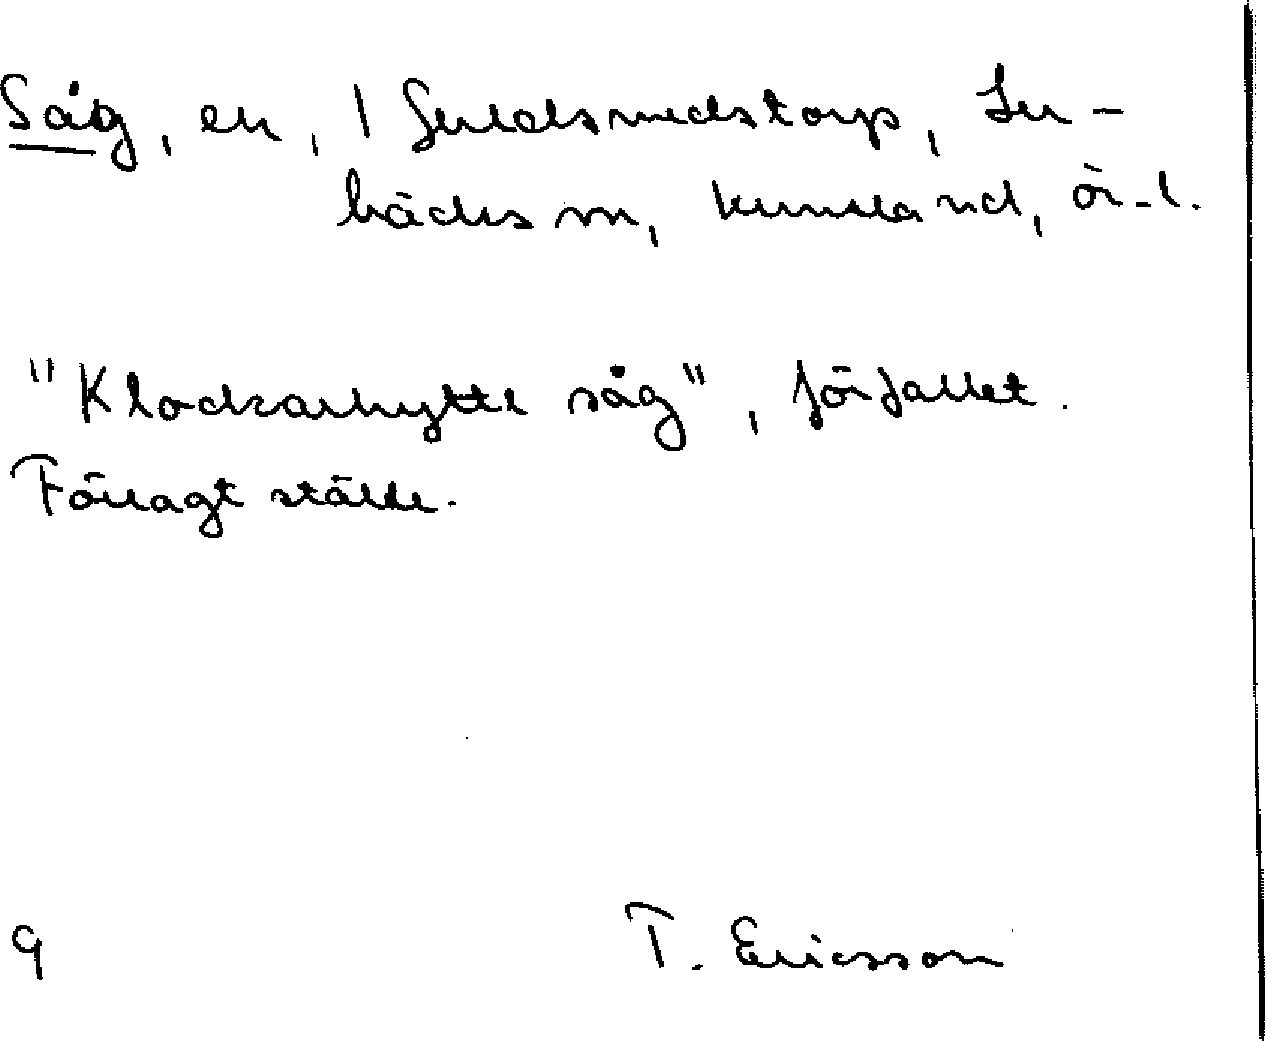 Såg, en, 1 Guldsmedstorp, Ler-
bäcks sn, Kumla hd, Ör. l.
"Klockarhytte såg", förfallet.
Förlagt ställe.
9 T. Ericsson